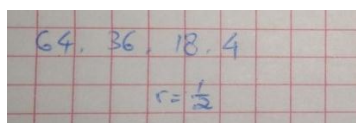 64, 36, 18, 4
r = 1/2